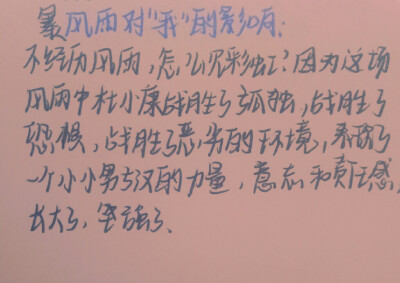 暴风雨对"我"的影响：
不经历风雨，怎么见彩虹？因为这场
风雨中杜小康战胜了孤独，战胜了
恐惧，战胜了恶劣的环境，表现了
一个小小男子汉的力量，意志和责任感，
长大了，坚强了、